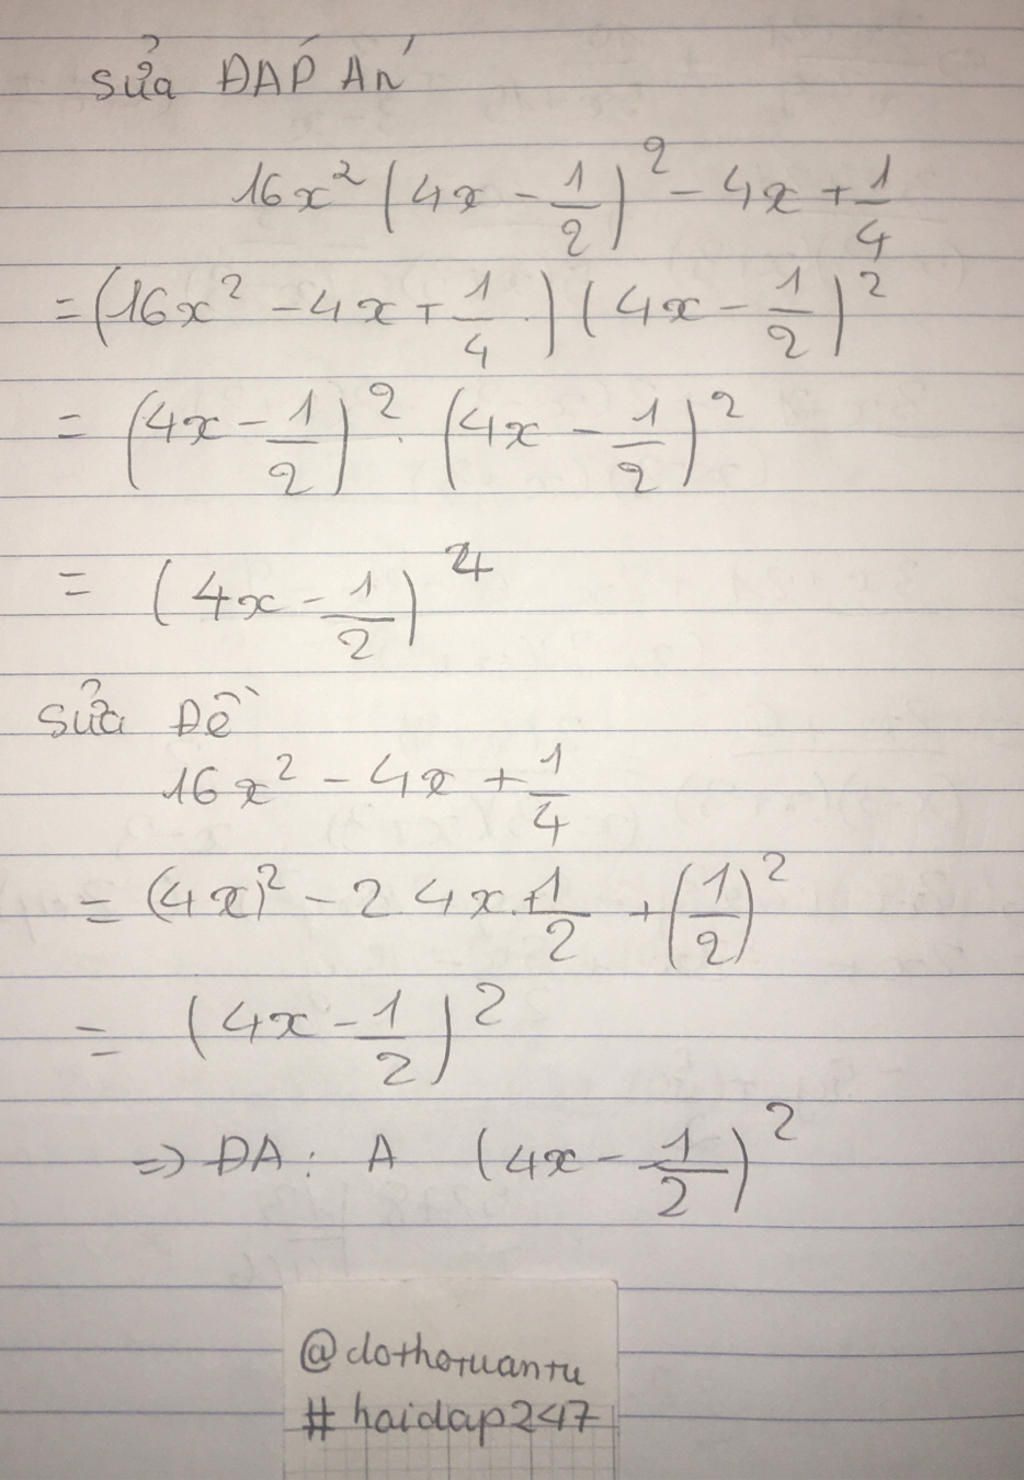 Sửa ĐÁP ÁN
16x² (4x - 1/2)² - 4x + 1/4
= (16x² - 4x + 1/4) (4x - 1/2)²
= (4x - 1/2)² . (4x - 1/2)²
= (4x - 1/2)⁴
Sửa Đề
16x² - 4x + 1/4
= (4x)² - 2 4x . 1/2 + (1/2)²
= (4x - 1/2)²
=> ĐA : A (4x - 1/2)²
@dothotuantu
# hoidap247